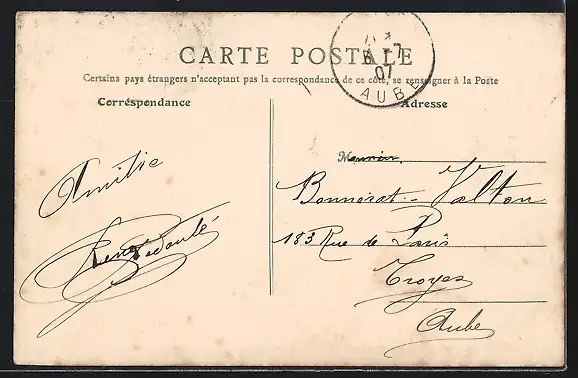 CARTE POSTALE
Certains pays étrangers n'acceptent pas la correspondance de ce côté, se renseigner à la Poste
Correspondance
Adresse
Amitié
René
Bonnerot-Valton
183 Rue de Paris
Troyes
Aube
07
AUBE